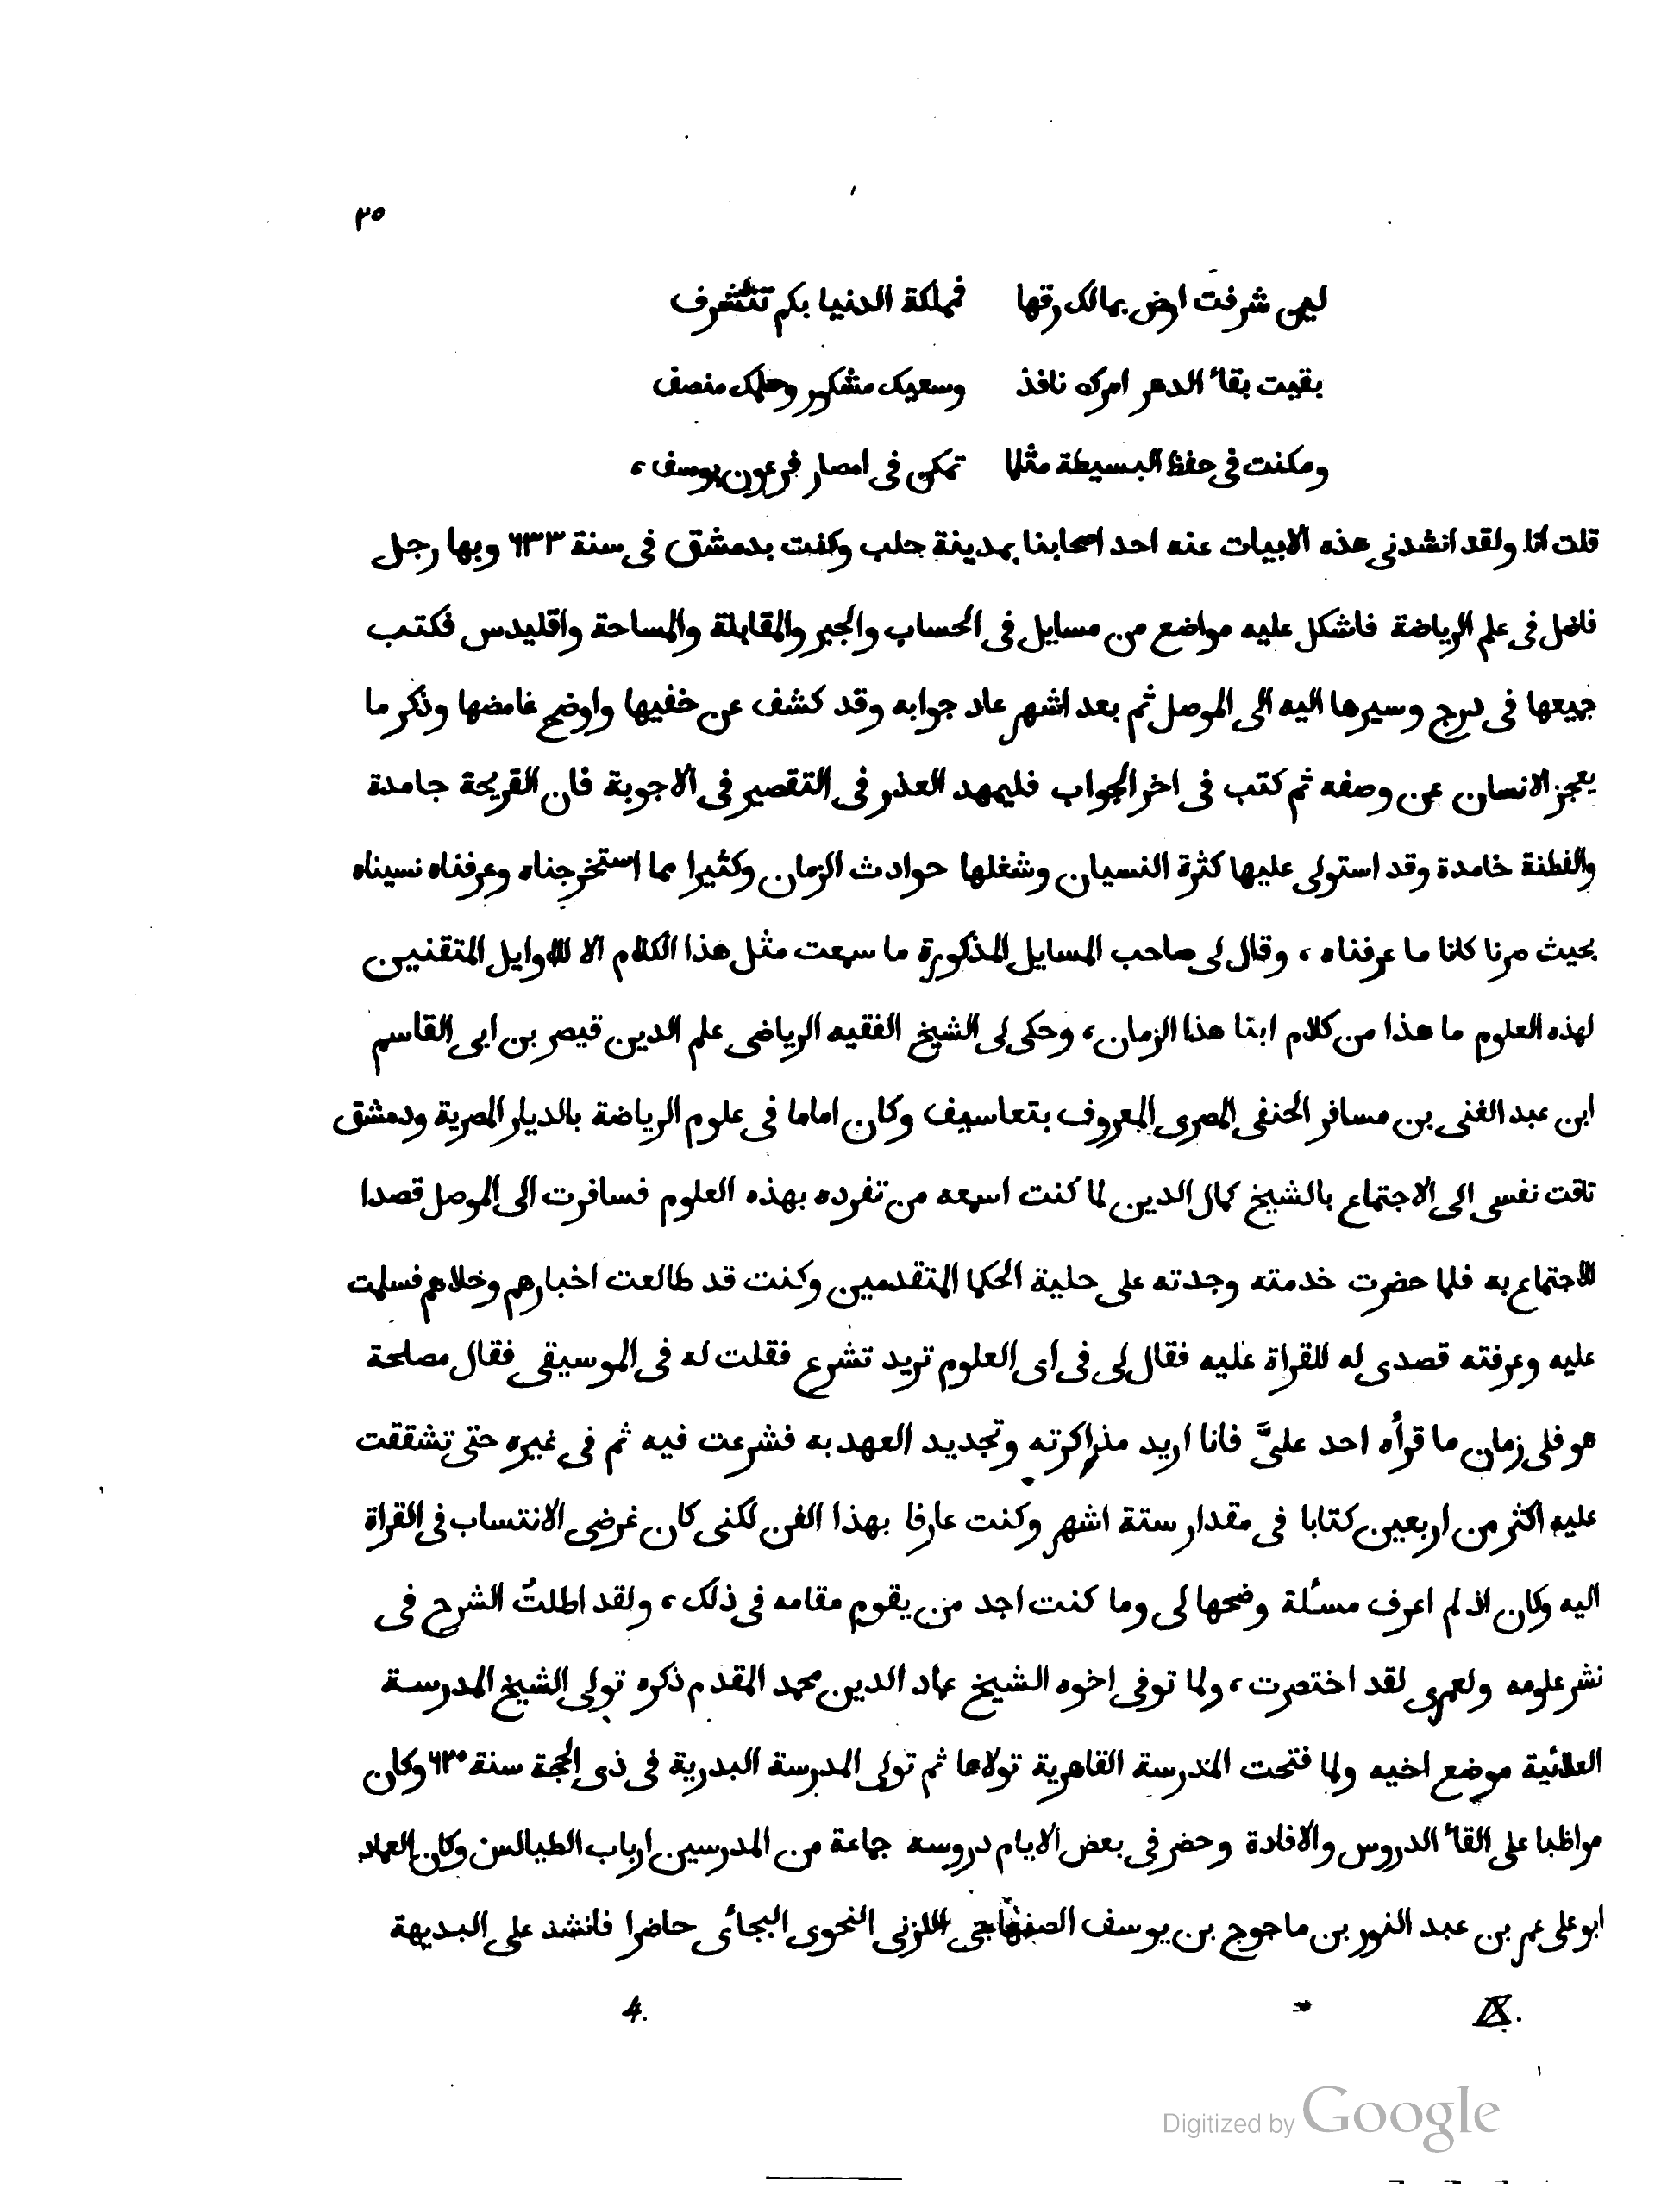 ٢٥
لئن شرفت ارض بمالك رقها فمملكة الدنيا بكم تتشرف
بقيت بقاء الدهر امرك نافذ وسعيك مشكور وحكمك منصف
ومكنت فى حفظ البسيطة مثلما تمكن فى امصار فرعون يوسف ،
قلت انا ولقد انشدنى هذه الابيات عنه احد اصحابنا بمدينة حلب وكنت بدمشق فى سنة ٦٣٣ وبها رجل
فاضل فى علم الرياضة فاشكل عليه مواضع من مسايل فى الحساب والجبر والمقابلة والمساحة واقليدس فكتب
جميعها فى درج وسيرها اليه الى الموصل ثم بعد اشهر عاد جوابه وقد كشف عن خفيها واوضح غامضها وذكر ما
يعجز الانسان عن وصفه ثم كتب فى اخر الجواب فليمهد العذر فى التقصير فى الاجوبة فان القريحة جامدة
والفطنة خامدة وقد استولى عليها كثرة النسيان وشغلها حوادث الزمان وكثيرا مما استخرجناه وعرفناه نسيناه
بحيث صرنا كانا ما عرفناه ، وقال لى صاحب المسايل المذكورة ما سمعت مثل هذا الكلام الا للاوايل المتقنين
لهذه العلوم ما هذا من كلام ابنا هذا الزمان ، وحكى لى الشيخ الفقيه الرياضى علم الدين قيصر بن ابى القاسم
ابن عبد الغنى بن مسافر الحنفى المصرى المعروف بتعاسيف وكان اماما فى علوم الرياضة بالديار المصرية ودمشق
تاقت نفسى الى الاجتماع بالشيخ كمال الدين لما كنت اسمعه من تفرده بهذه العلوم فسافرت الى الموصل قصدا
للاجتماع به فلما حضرت خدمته وجدته على حلية الحكما المتقدمين وكنت قد طالعت اخبارهم وحلاهم فسلمت
عليه وعرفته قصدى له للقراة عليه فقال لى فى اى العلوم تريد تشرع فقلت له فى الموسيقى فقال مصلحة
هو فلى زمان ما قرأه احد علىَّ فانا اريد مذاكرته وتجديد العهد به فشرعت فيه ثم فى غيره حتى تشققت
عليه اكثر من اربعين كتابا فى مقدار ستة اشهر وكنت عارفا بهذا الفن لكنى كان غرضى الانتساب فى القراة
اليه وكان اذ لم اعرف مسئلة وضحها لى وما كنت اجد من يقوم مقامه فى ذلك ، ولقد اطلتُ الشرح فى
نشر علومه ولعمرى لقد اختصرت ، ولما توفى اخوه الشيخ عماد الدين محمد المقدم ذكره تولى الشيخ المدرسة
العلائية موضع اخيه ولما فتحت المدرسة القاهرية تولاها ثم تولى المدرسة البدرية فى ذى الحجة سنة ٦٢٠ وكان
مواظبا على القاء الدروس والافادة وحضر فى بعض الايام دروسه جماعة من المدرسين ارباب الطيالس وكان العماد
ابو على عمر بن عبد النور بن ماخوج بن يوسف الصنهاجى اللزنى النحوى البجائى حاضرا فانشد على البديهة
IX. * 4.
Digitized by Google